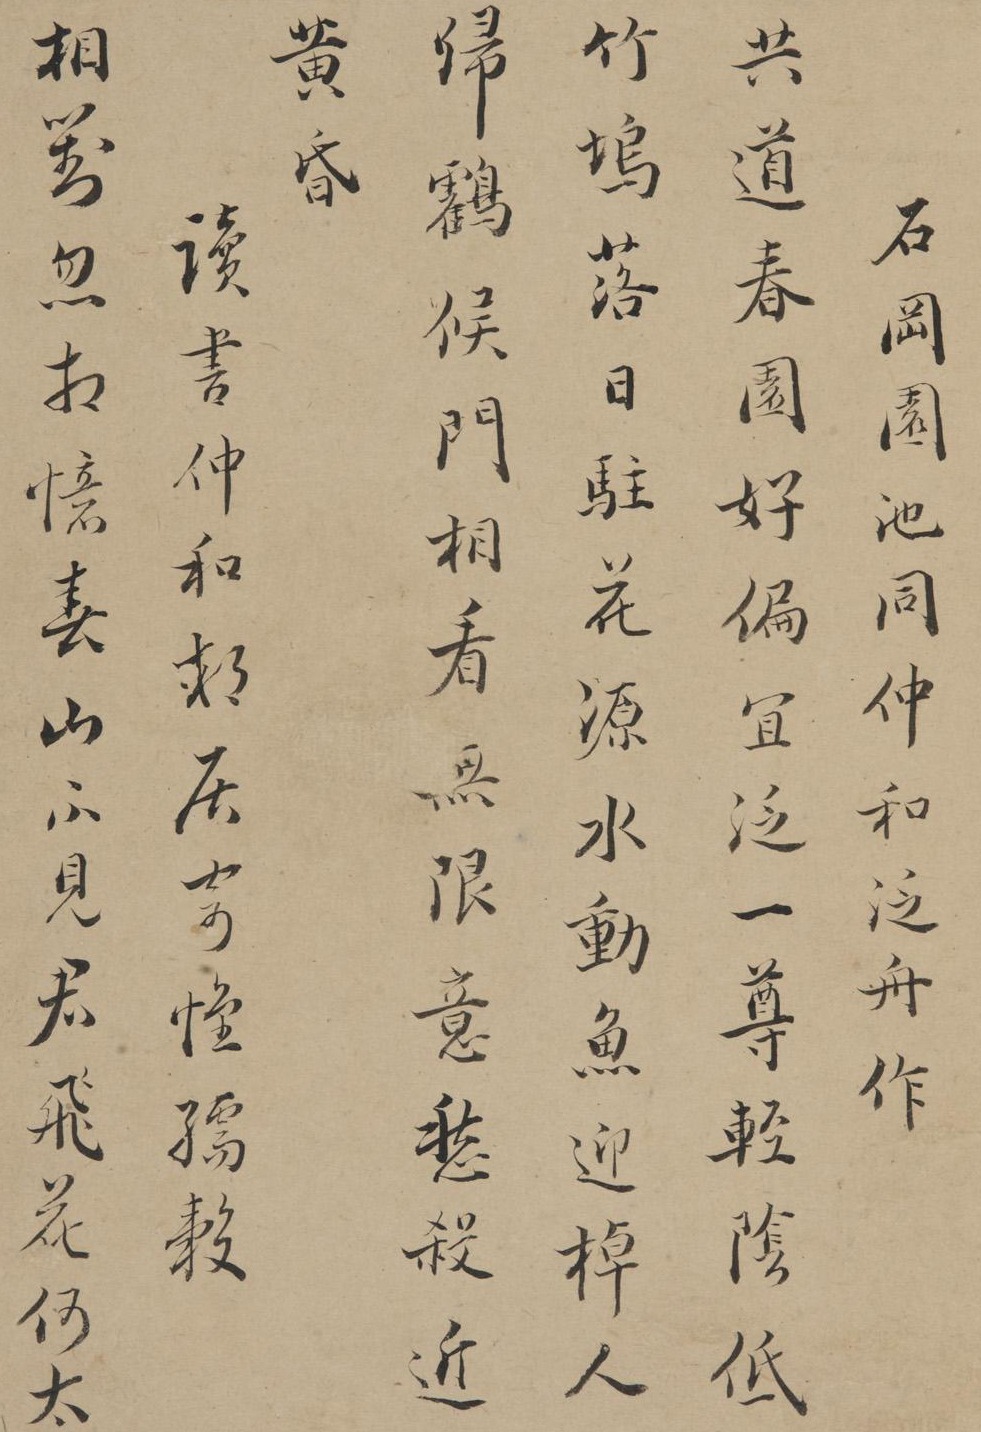 石岡園池同仲和泛舟作
共道春園好偏宜泛一尊輕陰低
竹塢落日駐花源水動魚迎棹人
歸鸖候門相看無限意愁殺近
黃昏
讀書仲和郝居寄惟孺敖
相對忽相憶春山不見君飛花何太